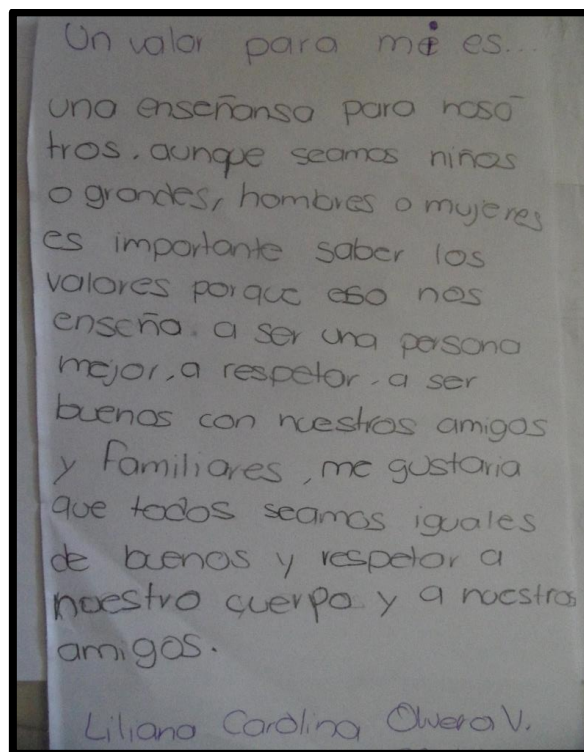 Un valor para mi es...
una enseñansa para noso
tros. aunque seamos niños
o grandes, hombres o mujeres
es importante saber los
valores porque eso nos
enseña. a ser una persona
mejor, a respetar. a ser
buenos con nuestros amigos
y familiares, me gustaria
que todos seamos iguales
de buenos y respetar a
nuestro cuerpo y a nuestros
amigos.
Liliana Carolina Olvera V.